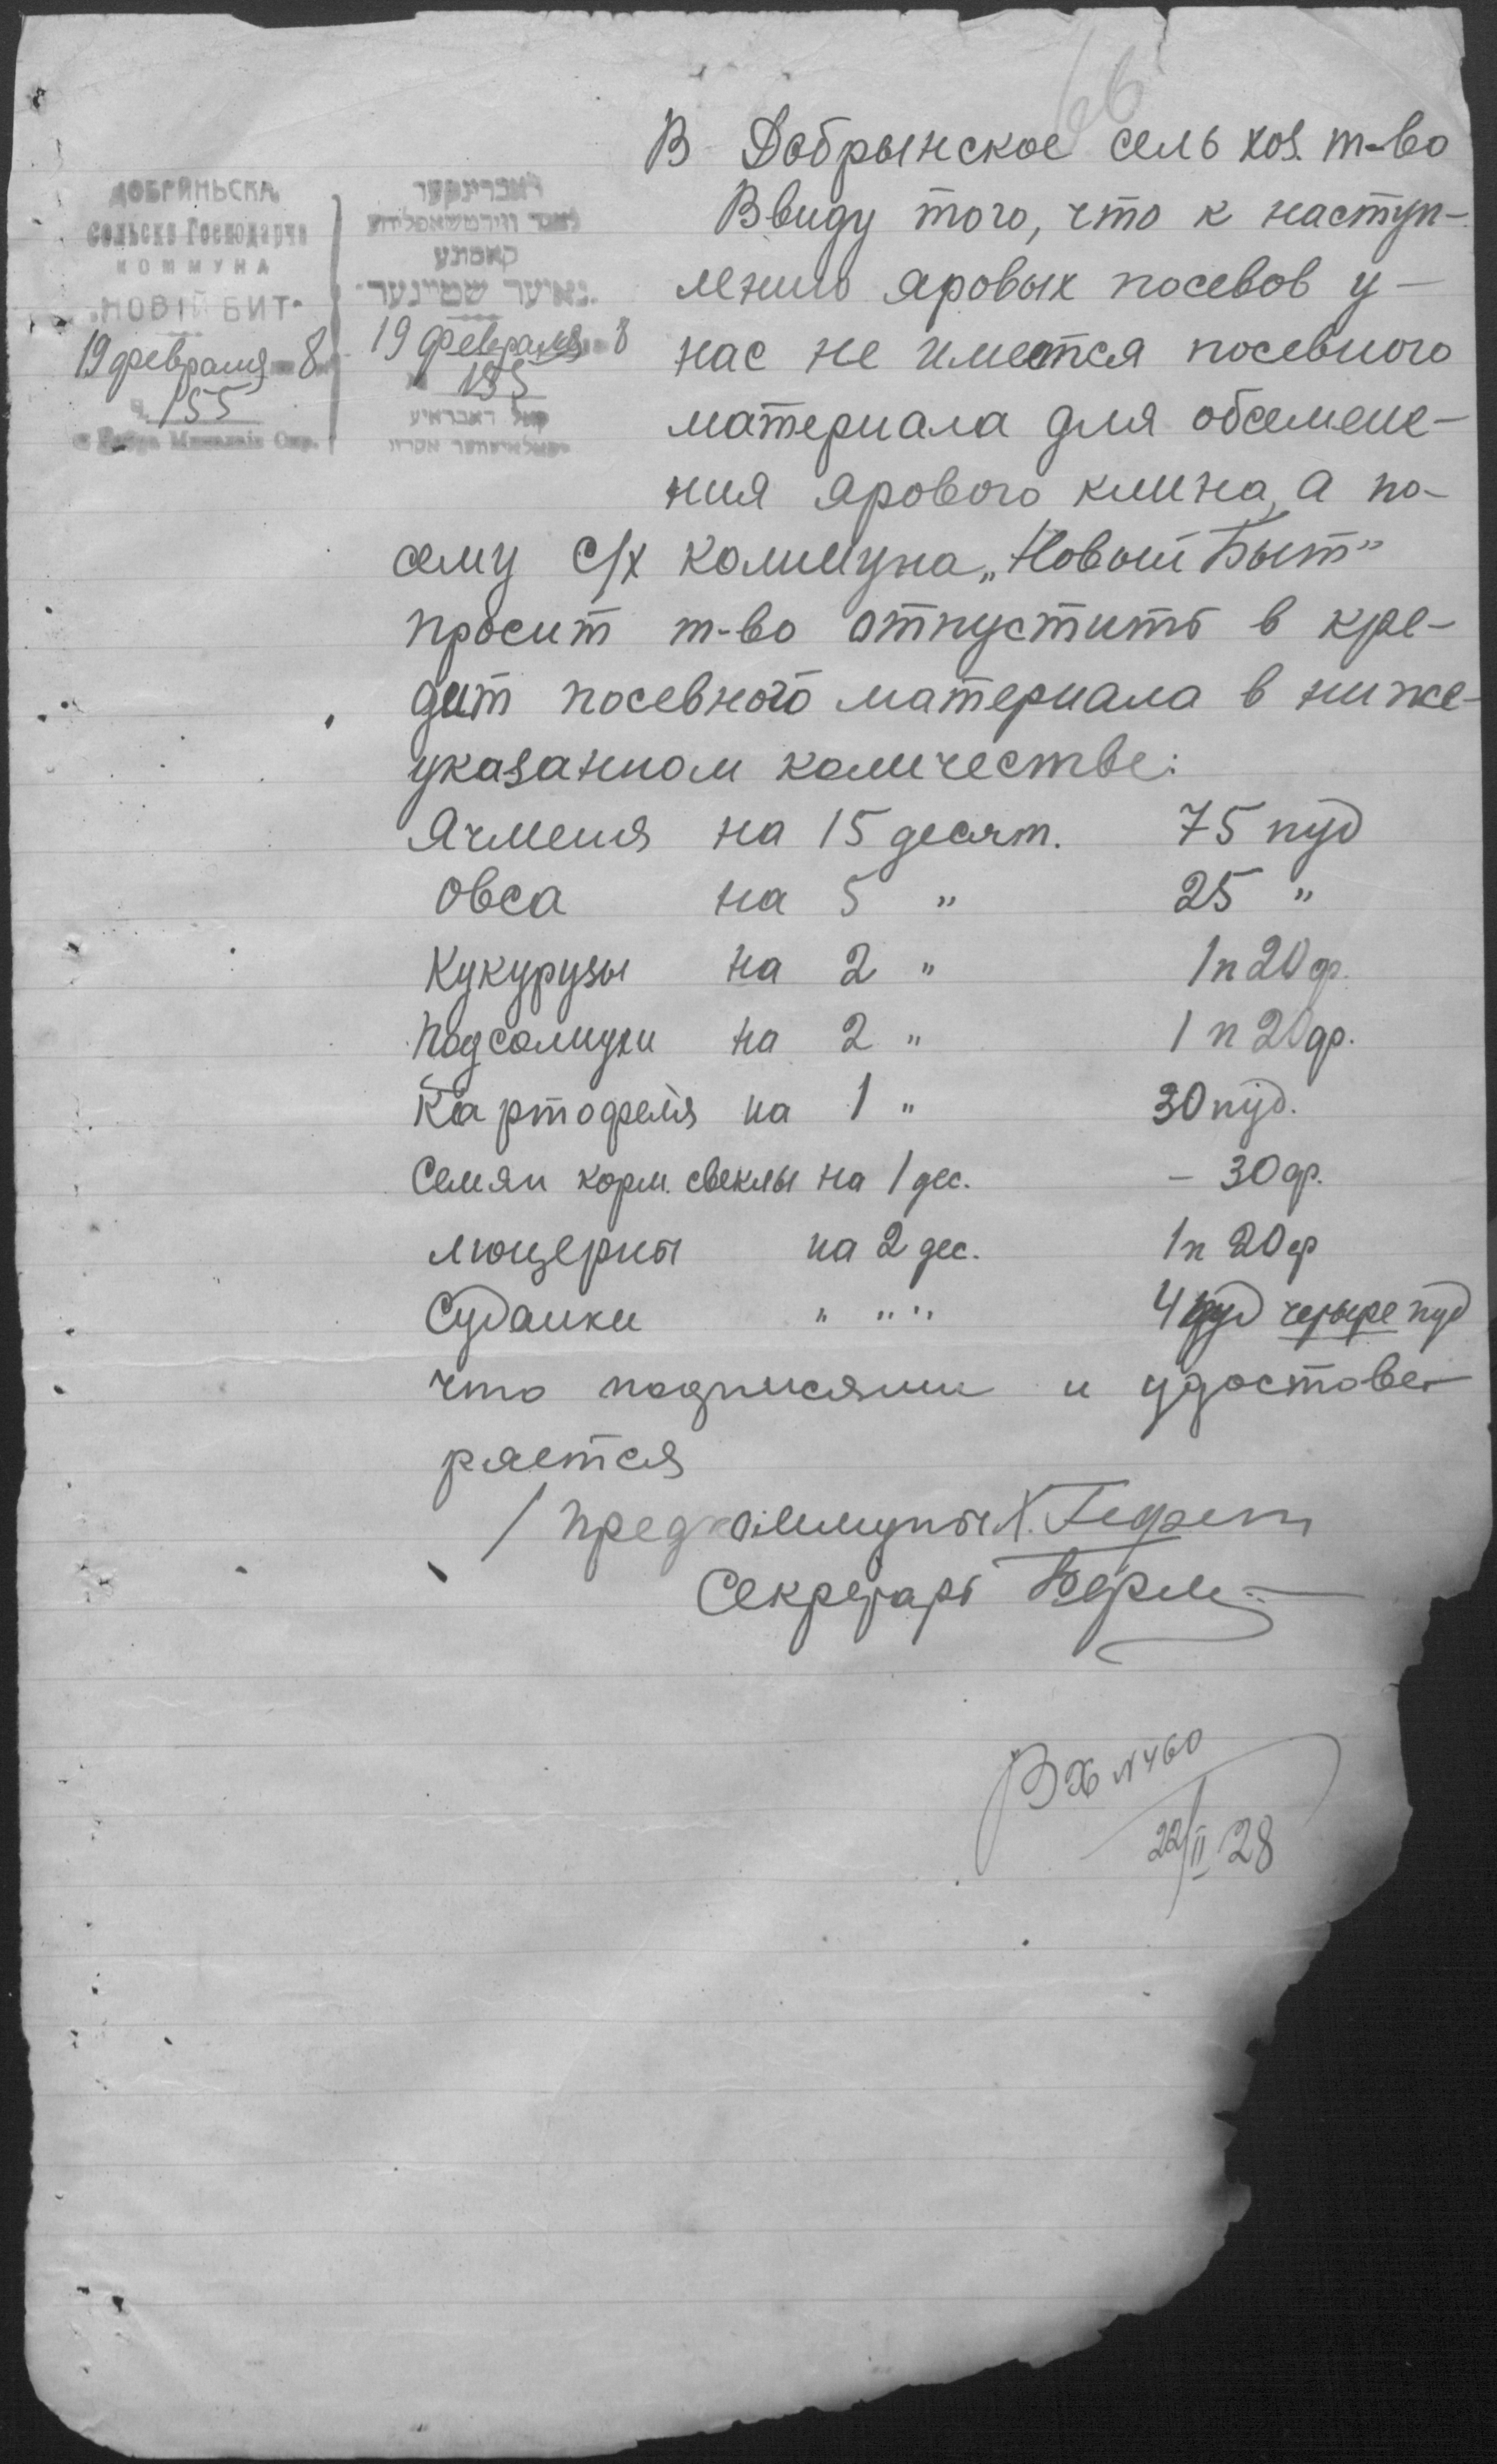 66
ДОБРИНЬСКА
Сельско Господарча
КОММУНА
„НОВІЙ БИТ"
19 февраля 8
155
דאברינקער
קאמונע
„נאיער שטייגער"
19 февраля 8
155
В Добрынское сель хоз. т-во
Ввиду того, что к наступ-
лению яровых посевов у-
нас не имеется посевного
материала для обсемене-
ния ярового клина, а по-
сему с/х коммуна „Новый Быт"
просит т-во отпустить в кре-
дит посевного материала в ниже-
указанном количестве:
Ячменя на 15 десят. 75 пуд
Овса на 5 " 25 "
Кукурузы на 2 " 1п 20ф.
Подсолнухи на 2 " 1 п 20ф.
Картофеля на 1 " 30 пуд.
Семян корм. свеклы на 1 дес. - 30ф.
люцерны на 2 дес. 1п 20ф
Суданки " " " 4 пуд четыре пуд
что подписями и удостове-
ряется
/ Предкоммуны Х. Гефен
Секретарь
Вх №460
22/II 28